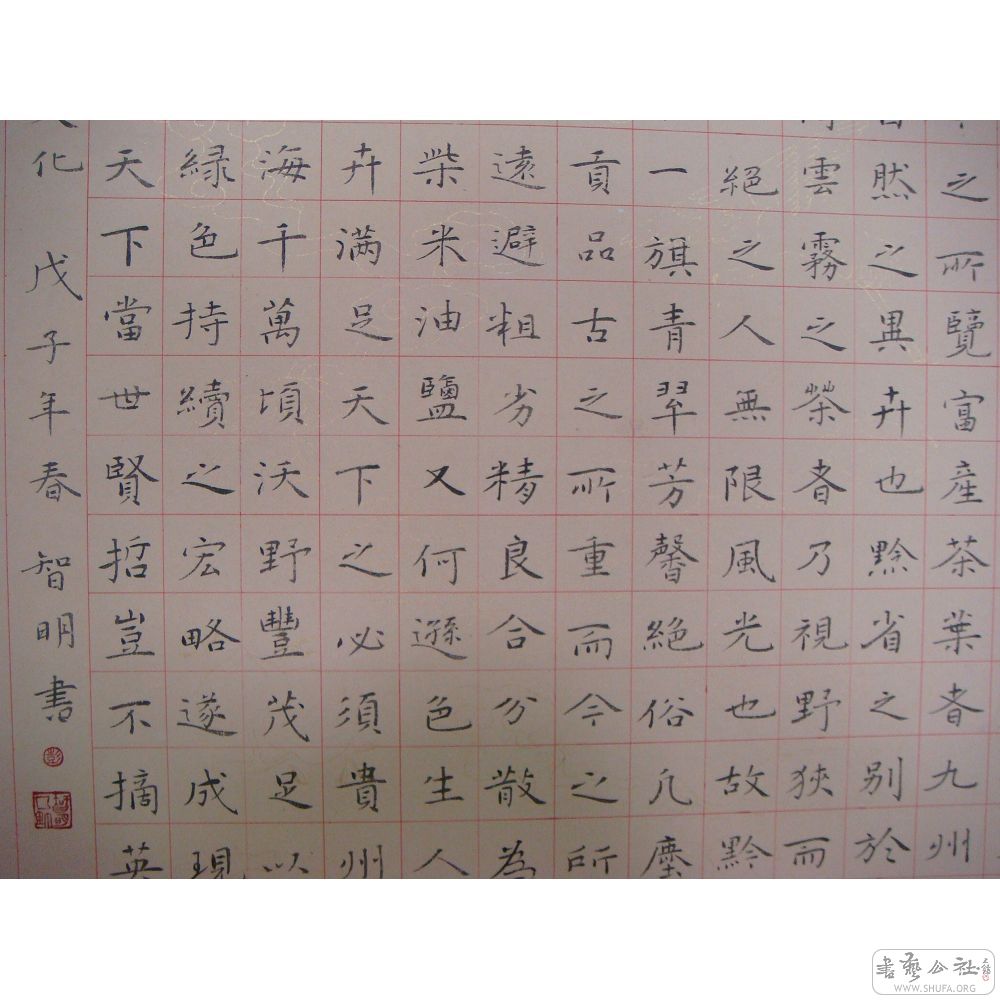 之所覽富産茶葉者九州
然之異卉也黔省之别於
雲霧之荣者乃視野狹而
絕之人無限風光也故黔
一旗青翠芳馨絕俗凡塵
貢品古之所重而今之所
遠避粗劣精良合分散為
柴米油鹽又何遜色生人
卉满足天下之必須貴州
海千萬頃沃野豐茂足以
緑色持續之宏略遂成現
天下當世賢哲豈不摘英
化 戊子年春 智明書
書藝公社
WWW.SHUFA.ORG